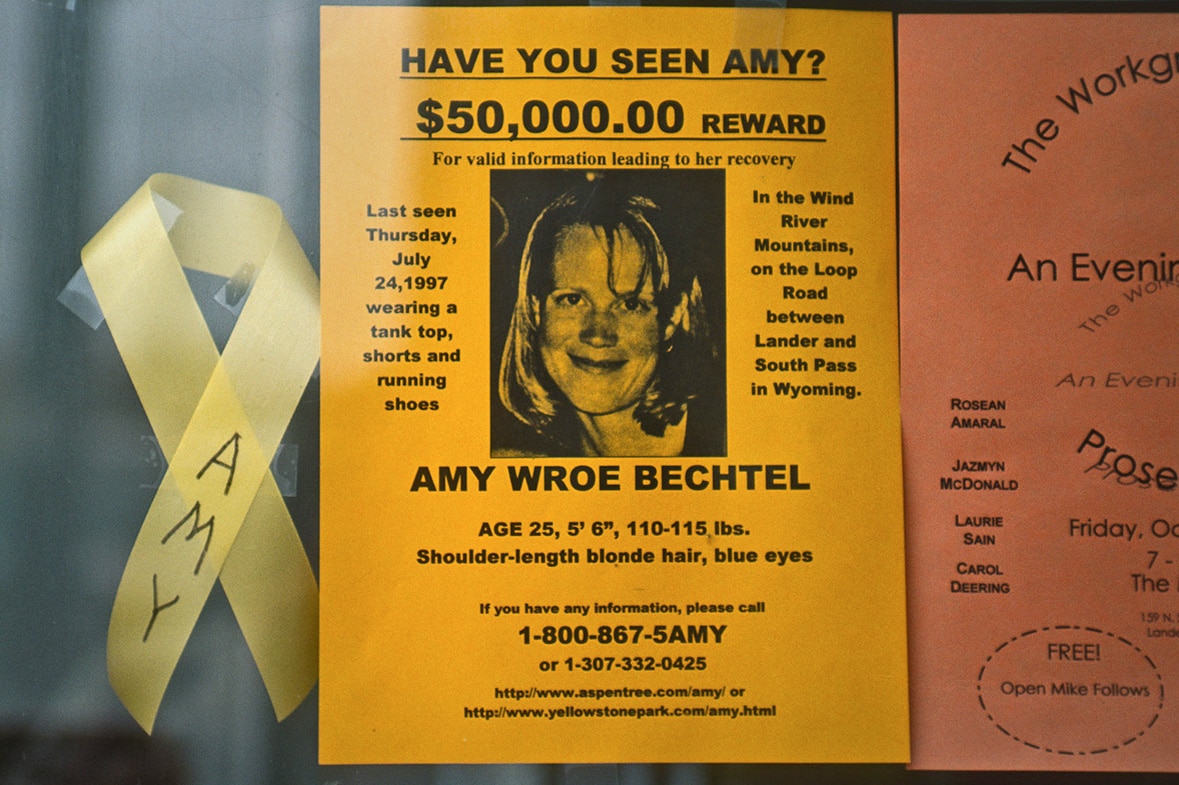 A
M
Y
HAVE YOU SEEN AMY?
$50,000.00 REWARD
For valid information leading to her recovery
Last seen
Thursday,
July
24,1997
wearing a
tank top,
shorts and
running
shoes
In the Wind
River
Mountains,
on the Loop
Road
between
Lander and
South Pass
in Wyoming.
AMY WROE BECHTEL
AGE 25, 5' 6”, 110-115 lbs.
Shoulder-length blonde hair, blue eyes
If you have any information, please call
1-800-867-5AMY
or 1-307-332-0425
http://www.aspentree.com/amy/ or
http://www.yellowstonepark.com/amy.html
The Workgr
An Evenin
The Work
An Eveni
ROSEAN
AMARAL
JAZMYN
MCDONALD
LAURIE
SAIN
CAROL
DEERING
Prose
Friday, Oc
7 -
The
159 N.
Lande
FREE!
Open Mike Follows